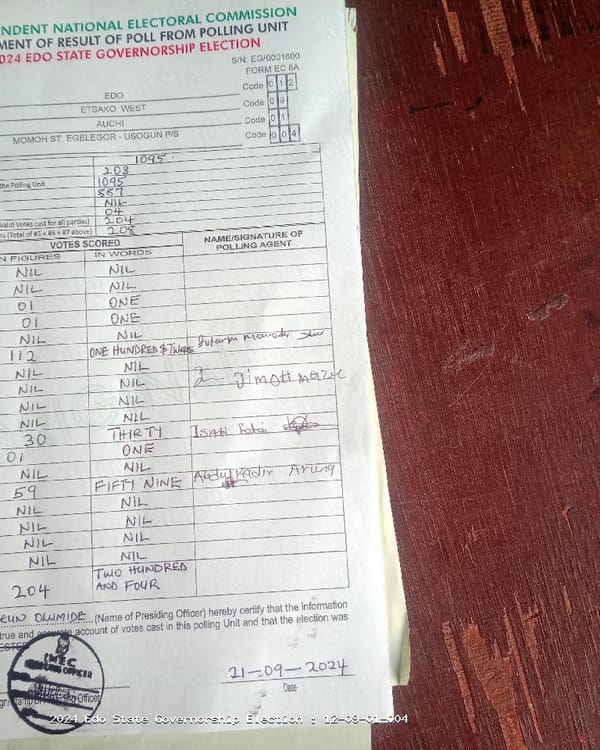 NDENT NATIONAL ELECTORAL COMMISSION
MENT OF RESULT OF POLL FROM POLLING UNIT
024 EDO STATE GOVERNORSHIP ELECTION
S/N: EG/0001600
FORM EC 8A
EDO Code 0 1 2
ETSAKO WEST Code 0 9
AUCHI Code 0 1
MOMOH ST. EGELEGOR - USOGUN P/S Code 0 0 4
1095
208
the Polling Unit 1095
887
NIL
04
Valid Votes cast for all parties) 204
rs (Total of #5 + #6 + #7 above) 208
VOTES SCORED NAME/SIGNATURE OF POLLING AGENT
N FIGURES IN WORDS
NIL NIL
NIL NIL
01 ONE
01 ONE
NIL NIL
112 ONE HUNDRED & TWELVE
NIL NIL
NIL NIL Jimoh
NIL NIL
NIL NIL
30 THIRTY ISAH
01 ONE
NIL NIL
59 FIFTY NINE Abdulkadir
NIL NIL
NIL NIL
NIL NIL
NIL NIL
204 TWO HUNDRED AND FOUR
EUN OLUMIDE (Name of Presiding Officer) hereby certify that the information
true and account of votes cast in this polling Unit and that the election was
INEC
OFFICER
21-09-2024
Officer
Date
2024 Edo State Governorship Election : 12-09-01-004